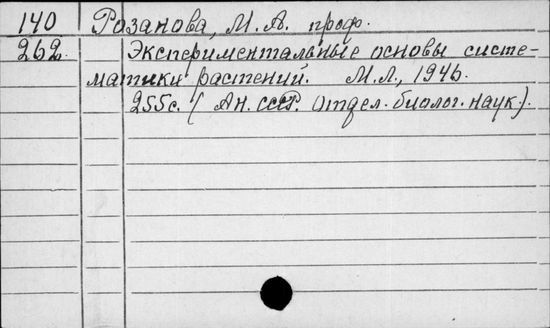 140 Розанова, М.А. проф.
262. Экспериментальные основы систе-
матики растений. М.Л., 1946.
255с. (Ан. СССР. Отдел. биолог. наук.).